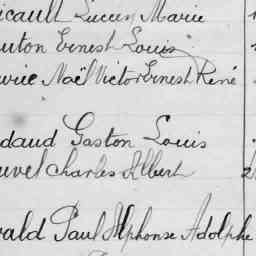 icault Lucien Marie
uton Ernest Louis
urice Noël Victor Ernest René
daud Gaston Louis
uvel Charles Albert
vald Paul Alphonse Adolphe